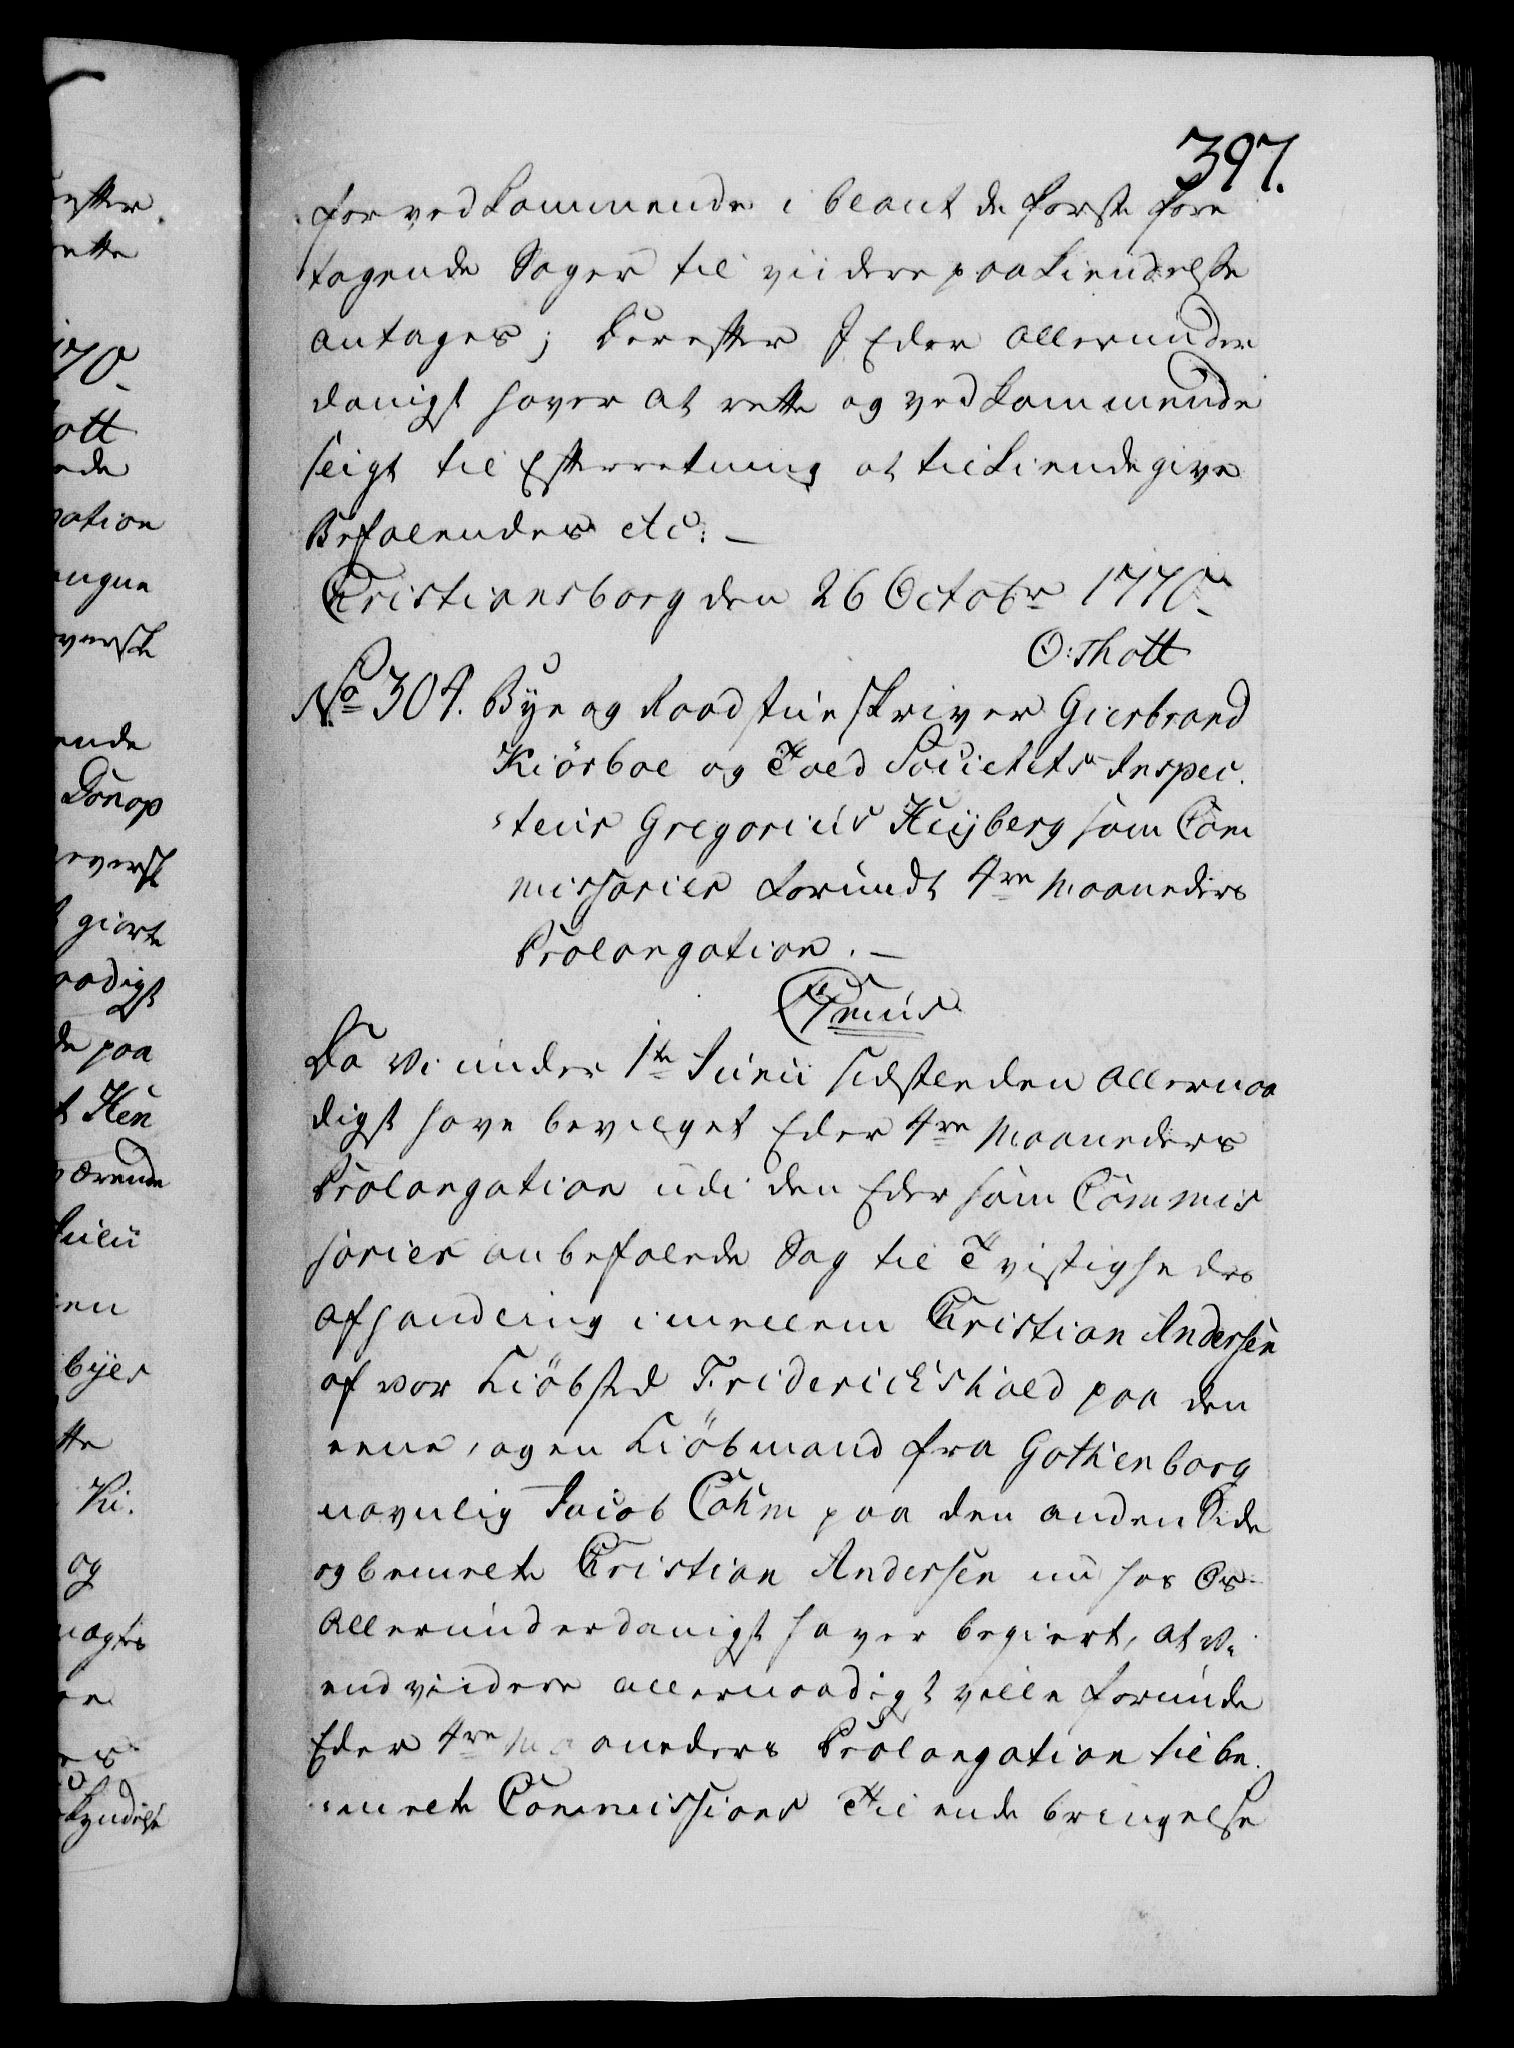 397.
for vedkommende i blant de første fore
tagende Sager til viidere paakiendelse
antages; Derefter I Eder allerunder
danigst haver at rette og vedkommende
sligt til Efterretning at tilkiendegive
Befalendes etc: —
Christiansborg den 26 Octobr 1770
O: Thott
No 304. Bye og Raadstue Skriver Gierbrand
Kiörboe og Told Societets Inspec-
teur Gregorius Heijberg som Com
missarier forundt 4re Maaneders
Prolongation. —
CVII
Da Vi under 1te Junii sidstleden allernaa
digst have bevilget Eder 4re Maaneders
Prolongation udi den Eder som Commis
sarier anbefalede Sag til Tvistigheders
afhandling imellem Christian Andersen
af vor Kiöbsted Friderichshald paa den
eene, og en Kiöbmand fra Gothenborg
navnlig Jacob Cahm paa den anden Side
og bemelte Christian Andersen nu hos Os
allerunderdanigst haver begiert, at Vi
end viidere allernaadigst ville forunde
Eder 4re Maaneders Prolongation til be-
melte Commissions Tilendebringelse